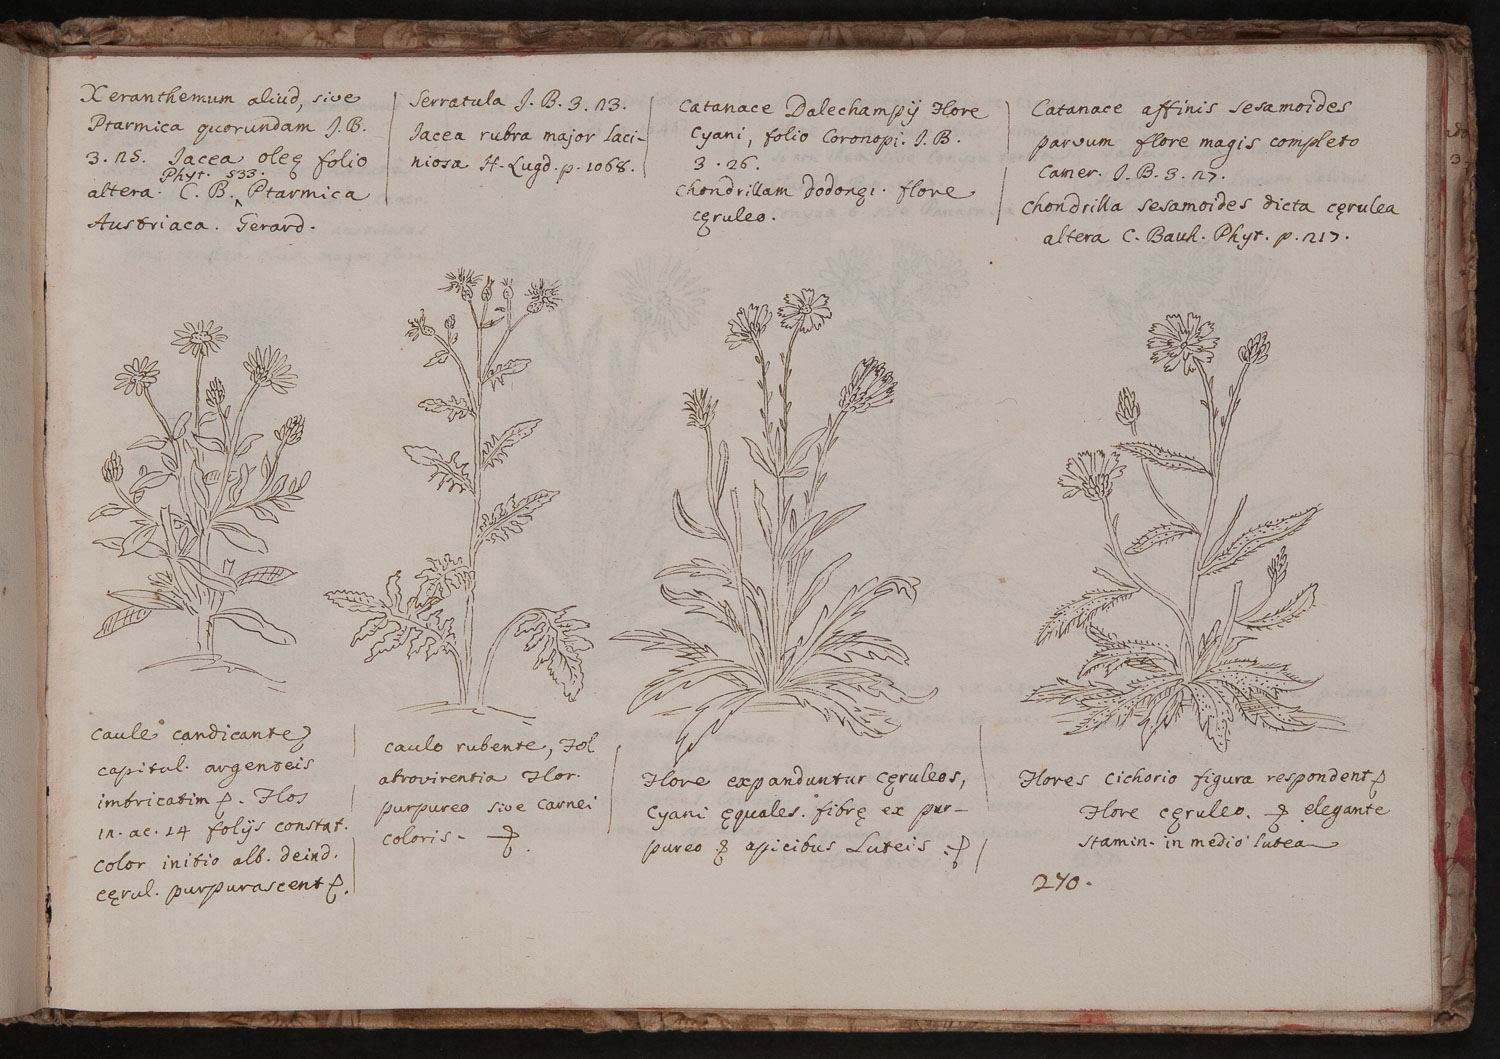 Xeranthemum aliud, sive
Ptarmica quorundam J. B.
3. 25. Jacea oleę folio
Phyt. 533.
altera. C. B. ‸ Ptarmica
Austriaca. Gerard.
Serratula J. B. 3. 23.
Jacea rubra major laci-
niosa H. Lugd. p. 1068.
Catanace Dalechampij Flore
Cyani, folio Coronopi. J. B.
3. 26.
Chondrillam Dodonęi. flore
cęruleo.
Catanace affinis Sesamoides
parvum flore magis completo
Camer. J. B. 3. 27.
Chondrilla Sesamoides dicta cęrulea
altera C. Bauh. Phyt. p. 217.
Caule candicante
capitul. argenteis
imbricatim. Flos
in. ac. 14 folijs constat.
color initio alb. deind.
cęrul. purpurascent.
Caulo rubente, Fol
atrovirentia Flor.
purpureo sive Carnei
coloris -
Flore expanduntur cęruleos,
Cyani ęquales. fibrę ex pur-
pureo & apicibus Luteis.
Flores Cichorio figura respondent
Flore cęruleo. & elegante
Stamin. in medio lutea
270.